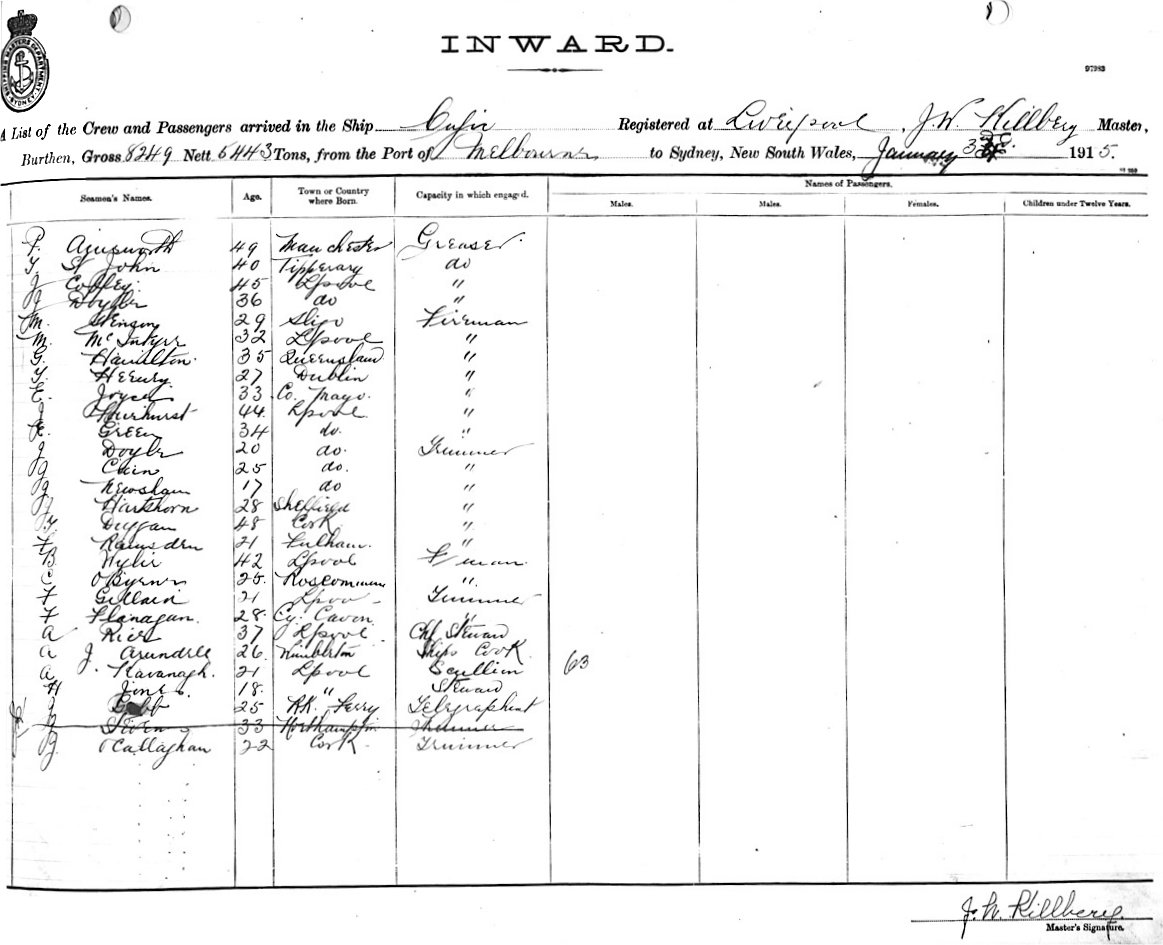 INWARD.
97983
A List of the Crew and Passengers arrived in the Ship Cufic Registered at Liverpool, J. W. Killberg Master,
Burthen, Gross 8249 Nett 5443 Tons, from the Port of Melbourne to Sydney, New South Wales, January 3 1915.
Names of Passengers.
Seamen's Names. Age. Town or Country where Born. Capacity in which engaged. Males. Males. Females. Children under Twelve Years.
P. Ainsworth 49 Manchester Greaser
T. St John 40 Tipperary do
J Copley 45 Lpool "
J Doyle 36 do "
M. Stenson 29 Sligo Fireman
M. McIntyre 32 Lpool "
G. Hamilton 35 Queensland "
27 Dublin "
Joyce 33 Co. Mayo "
J 44 Lpool "
Green 34 do. "
J Doyle 20 do. Trimmer
J Cain 25 do. "
J Newsham 17 do "
Hartshorn 28 Sheffield "
T. Duggan 48 Cork "
F Ramsden 21 Fulham. "
B Wylie 42 Lpool F'man
C O'Byrne 25. Roscommon "
F 21 Lpool Trimmer
F Flanagan. 28. Cy. Cavan "
A Rice 37 Lpool Chf Steward
A J Arundell 26. Ships Cook
A. Kavanagh. 21 Lpool Scullion 63
H Jones. 18. " Steward
25 Rk. Ferry Telegraphist
33 Northampton Trimmer
J. O'Callaghan 22 Cork Trimmer
J. W. Killberg
Master's Signature.